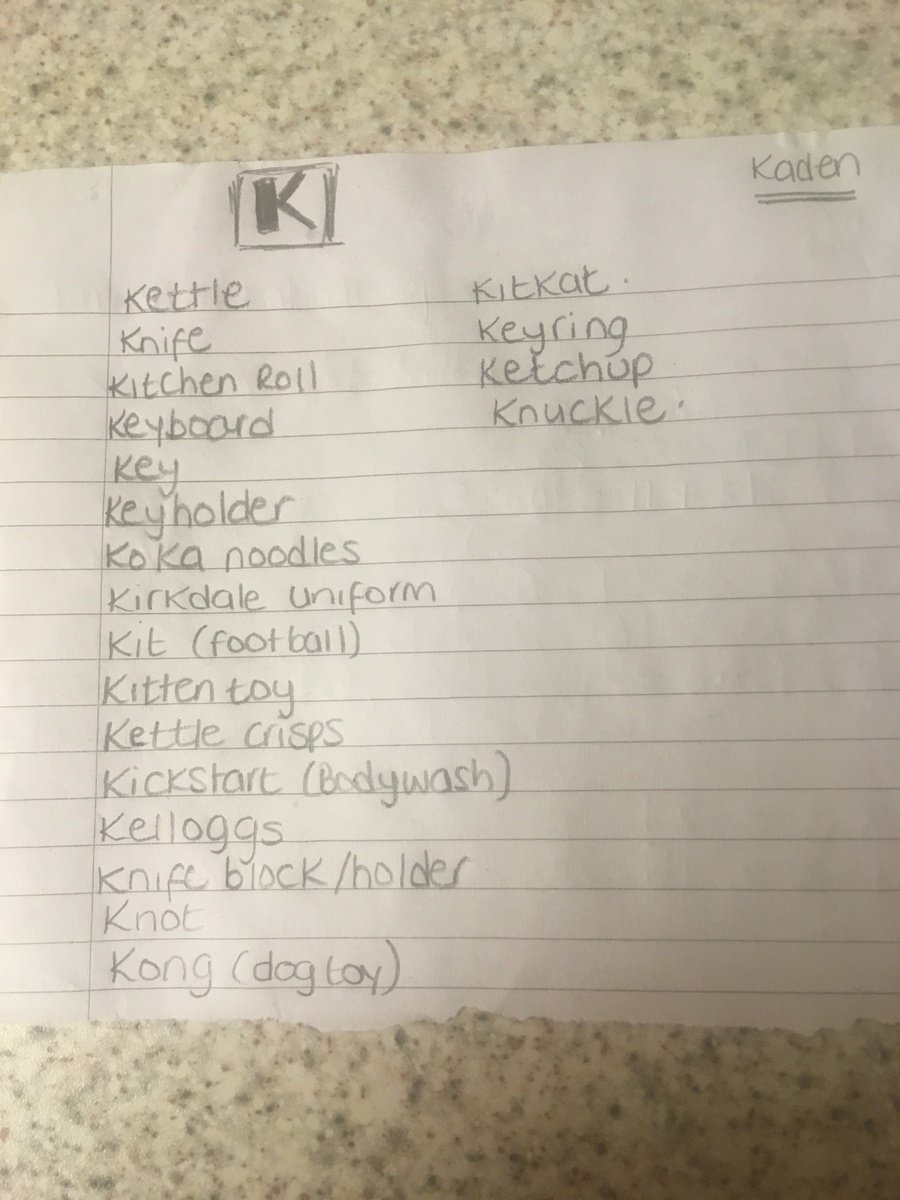 K
Kaden
Kettle
Knife
Kitchen Roll
Keyboard
Key
Keyholder
Koka noodles
Kirkdale uniform
Kit (football)
Kitten toy
Kettle crisps
Kickstart (Bodywash)
Kelloggs
Knife block/holder
Knot
Kong (dog toy)
KitKat.
Keyring
Ketchup
Knuckle.